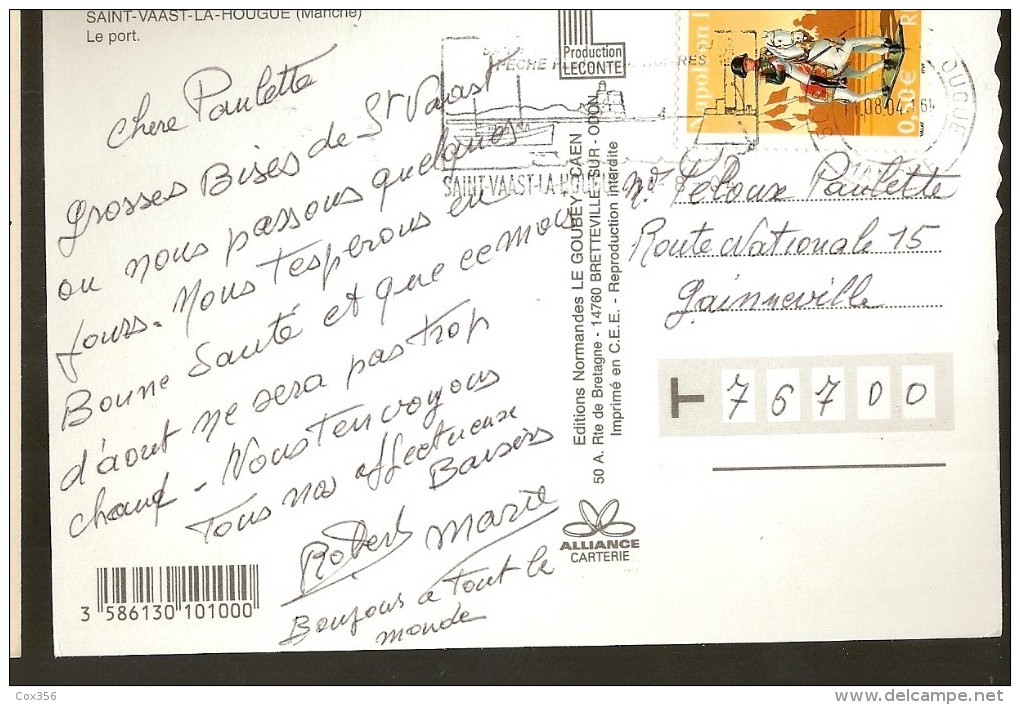 SAINT-VAAST-LA-HOUGUE (Manche)
Le port.
Chere Paulette
Grosses Bises de St Vaast
ou nous passons quelques
jours. Nous t'esperons en
Bonne Santé et que ce mois
d'aout ne sera pas trop
chaud - Nous t'envoyons
Tous nos affectueux
Baisers
Robert Marie
Bonjour a Tout le
monde
3 586130 101000
Production
LECONTE
PECHE
SAINT-VAAST-LA-HOUGUE
Editions Normandes LE GOUBEY - CAEN
50 A. Rte de Bretagne - 14760 BRETTEVILLE-SUR-ODON
Imprimé en C.E.E. - Reproduction interdite
ALLIANCE
CARTERIE
Napoléon I
RF
0,50€
08.04
Leloux Paulette
Route Nationale 15
Gainneville
T 76700
Cox356
delcampe.net